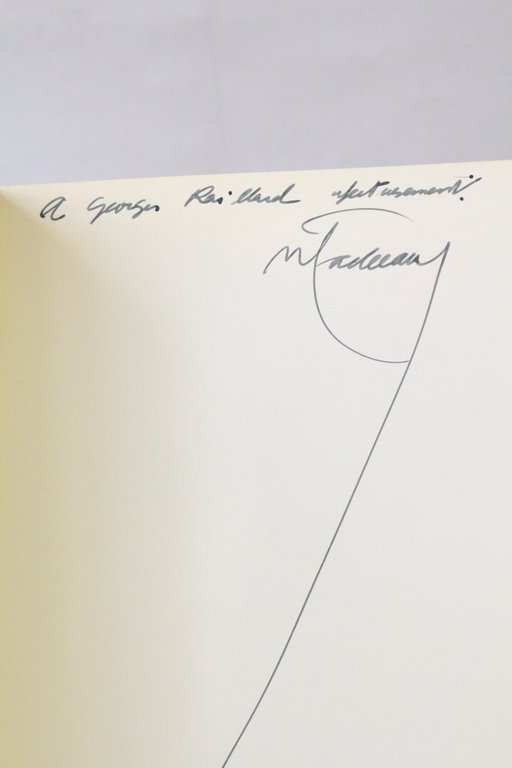 A Georges Raillard affectueusement